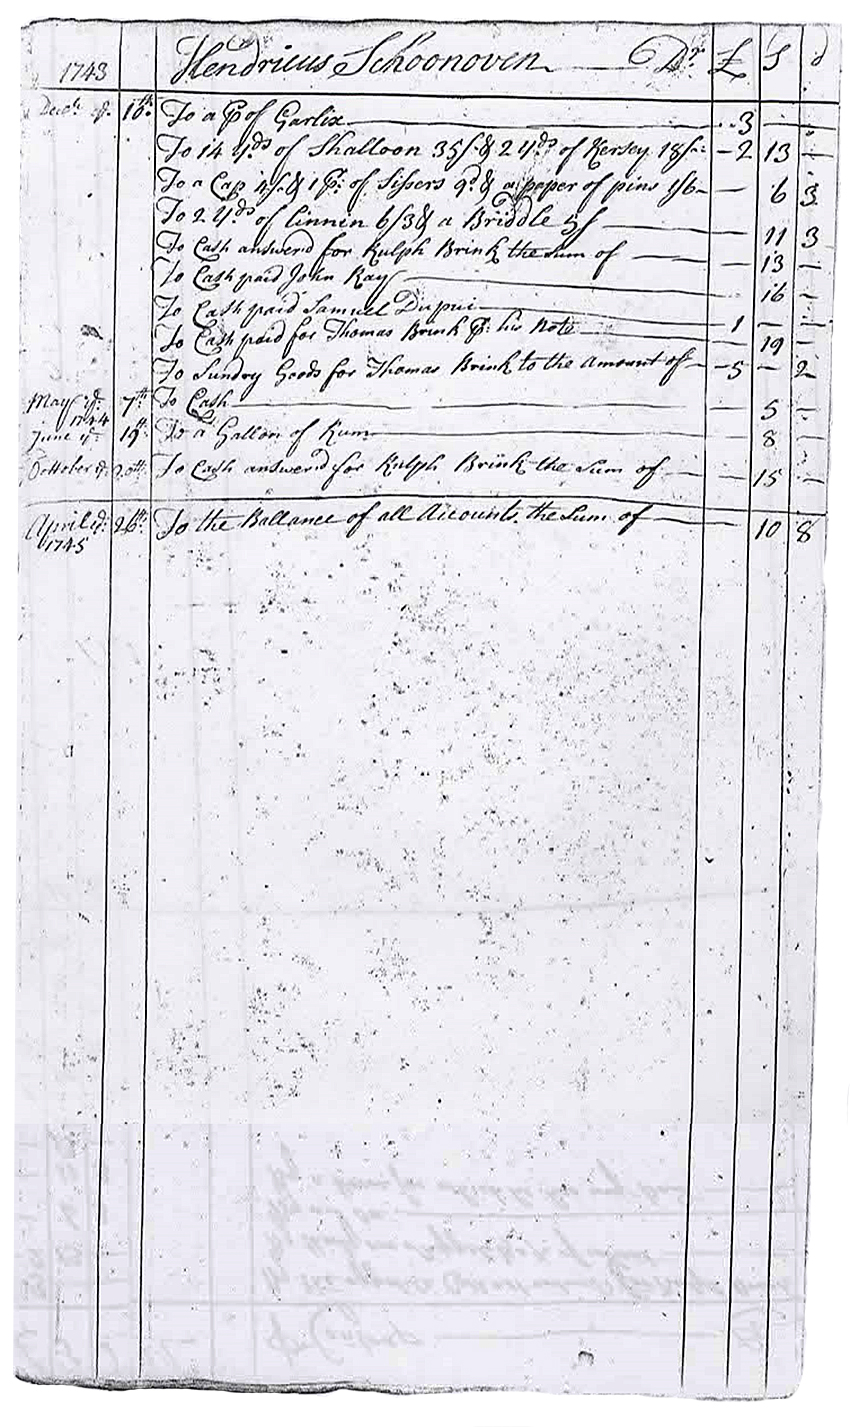 1743 Hendricus Schoonoven Dr. £ S d
Decbr ye 16th To a ps of Garlix 3 — —
To 14 yds of Shalloon 35/- & 2 yds of Kersey 18/- 2 13 —
To a Cap 4/- & 1 Pr: of Sissers 9d & a paper of pins 1/6 — 6 3
To 2 yds of linnin 6/3 & a Briddle 5/ — 11 3
To Cash answerd for Rulph Brink the sum of — 13 —
To Cash paid John Kay — 16 —
To Cash paid Samuel Dupui 1 — —
To Cash paid for Thomas Brink pr his Note — 19 —
To Sundry Goods for Thomas Brink to the Amount of 5 — 2
May ye 7th To Cash — 5 —
1744
June ye 19th To a Gallon of Rum — 8 —
Octtober ye 20th To Cash answerd for Rulph Brink the Sum of — 15 —
April ye 26th To the Ballance of all Accounts the Sum of — 10 8
1745